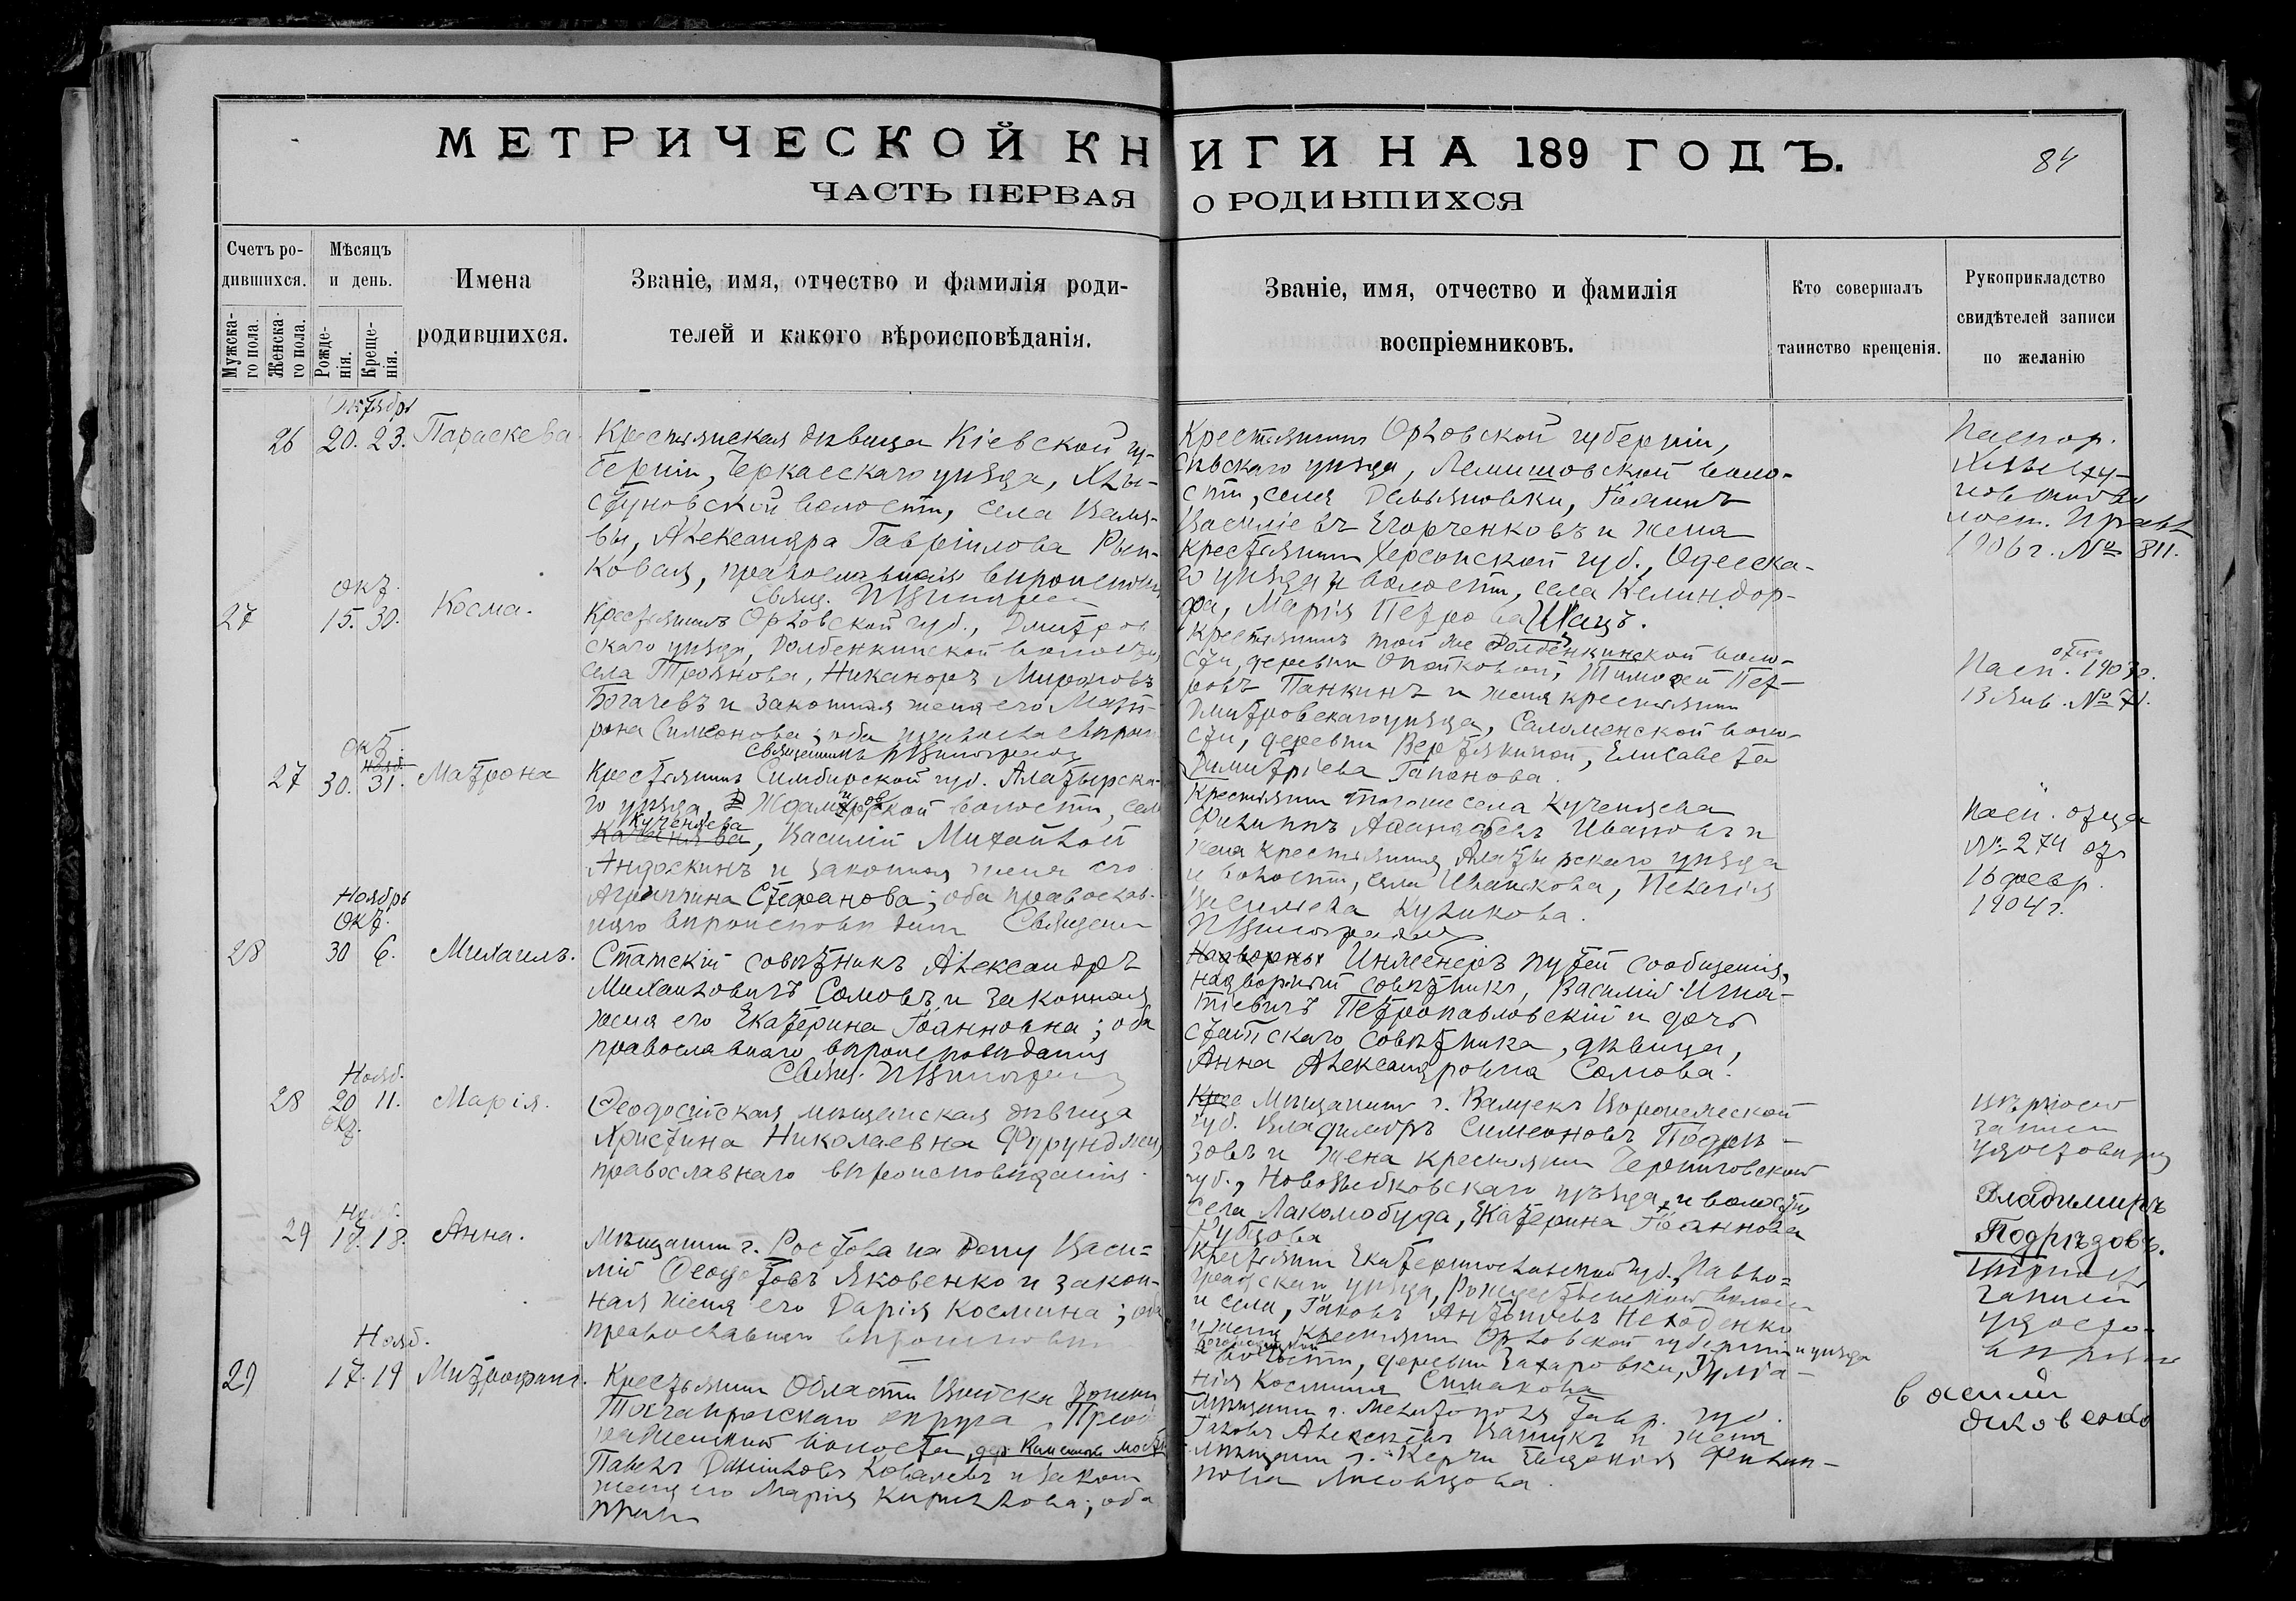 МЕТРИЧЕСКОЙ КНИГИ НА 189 ГОДЪ.
84
ЧАСТЬ ПЕРВАЯ О РОДИВШИХСЯ
Счетъ родившихся.
Мужскаго пола.
Женскаго пола.
Мѣсяцъ и день.
Рожденія.
Крещенія.
Имена родившихся.
Званіе, имя, отчество и фамилія роди-
телей и какого вѣроисповѣданія.
Званіе, имя, отчество и фамилія
воспріемниковъ.
Кто совершалъ
таинство крещенія.
Рукоприкладство
свидѣтелей записи
по желанію
Октябрь
26 20. 23. Параскева
Крестьянская дѣвица Кіевской гу-
берніи, Черкасскаго уѣзда, Хлы-
стуновской волости, села Валя-
вы, Александра Гавріилова
православнаго
Крестьянинъ Орловской губерніи,
Сѣвскаго уѣзда, Лемешовской воло-
сти, села Демьяновки, Іоаннъ
Василіевъ Егорченковъ и жена
крестьянина Херсонской губ., Одесска-
го уѣзда и волости, села Келиндор-
фа, Марія Петрова
1906 г. № 811.
окт.
27 15. 30. Косма.
Крестьянинъ Орловской губ., Дмитров
скаго уѣзда, Долбенкинской волости,
села Троянова, Никаноръ Мироновъ
Богачевъ и законная жена его Мат-
рона Симеонова; оба
Священникъ
Крестьянинъ той же Долбенкинской воло-
сти, деревни Опойковой, Тимофей Пет-
ровъ Панкинъ и жена крестьянина
Дмитровскаго уѣзда, Соломенской воло-
сти, деревни Вертякиной, Елисавета
Димитріева Гапонова.
отца
Пасп. 1903 г.
13 Янв. № 71.
Окт.
Нояб.
27 30. 31. Матрона
Крестьянинъ Симбирской губ. Алатырска-
го уѣзда, Ждамировской волости, села
Кученяева
Василій Михайлов
Андоскинъ и законная жена его
Агриппина Стефанова; оба православ-
наго вѣроисповѣданія Священникъ
Крестьянинъ того же села Кученяева
Филиппъ Ивановъ и
жена крестьянина Алатырскаго уѣзда
и волости, села Иванькова, Пелагія
Васильева Куликова.
Пасп. отца
№ 274 от
16 февр.
1904 г.
Ноябрь
Окт.
28 30 6. Михаилъ.
Статскій совѣтникъ Александръ
Михаиловичъ Сомовъ и законная
жена его Екатерина Іоанновна; оба
православнаго вѣроисповѣданія
Инженеръ путей сообщенія,
надворный совѣтникъ, Василій Игна-
тіевичъ Петропавловскій и дочь
статскаго совѣтника, дѣвица,
Анна Александровна Сомова.
Нояб.
28 20 11. Марія.
окт.
Ѳеодосійская мѣщанская дѣвица
Христина Николаевна Фурунджи,
православнаго вѣроисповѣданія.
Мѣщанинъ г. Валуекъ Воронежской
губ. Владиміръ Симеоновъ Подрѣ-
зовъ и жена крестьянина Черниговской
губ., Новозыбковскаго уѣзда, и волости
села Лакомобуда, Екатерина Іоаннова
Рубцова
вѣрность
записи
удостовѣряю
Владиміръ
Подрѣзовъ.
Нояб.
29 17. 18. Анна.
Мѣщанинъ г. Ростова на Дону Васи-
лій Ѳеодотовъ Яковенко и закон-
ная жена его Дарія Космина; оба
православнаго
Крестьянинъ Екатеринославской губ., Павло-
градскаго уѣзда, Рождественской волости
и села, Іаковъ Антоніевъ Неходенко
и жена крестьянина Орловской губерніи и уѣзда
волости, деревни Захаровки,
Космина Симакова
записи
василий
яковенко
Нояб.
29 17. 19 Митрофанъ.
Крестьянинъ Области Войска Донского
Таганрогскаго округа,
волости,
Павелъ Даниловъ Ковалевъ и законная
жена его Марія Кириллова; оба
прав
Мѣщанинъ г. Мелитополя Тавр. губ.
Іаковъ Алексѣевъ и жена
мѣщанина г. Керчи Филип-
пова